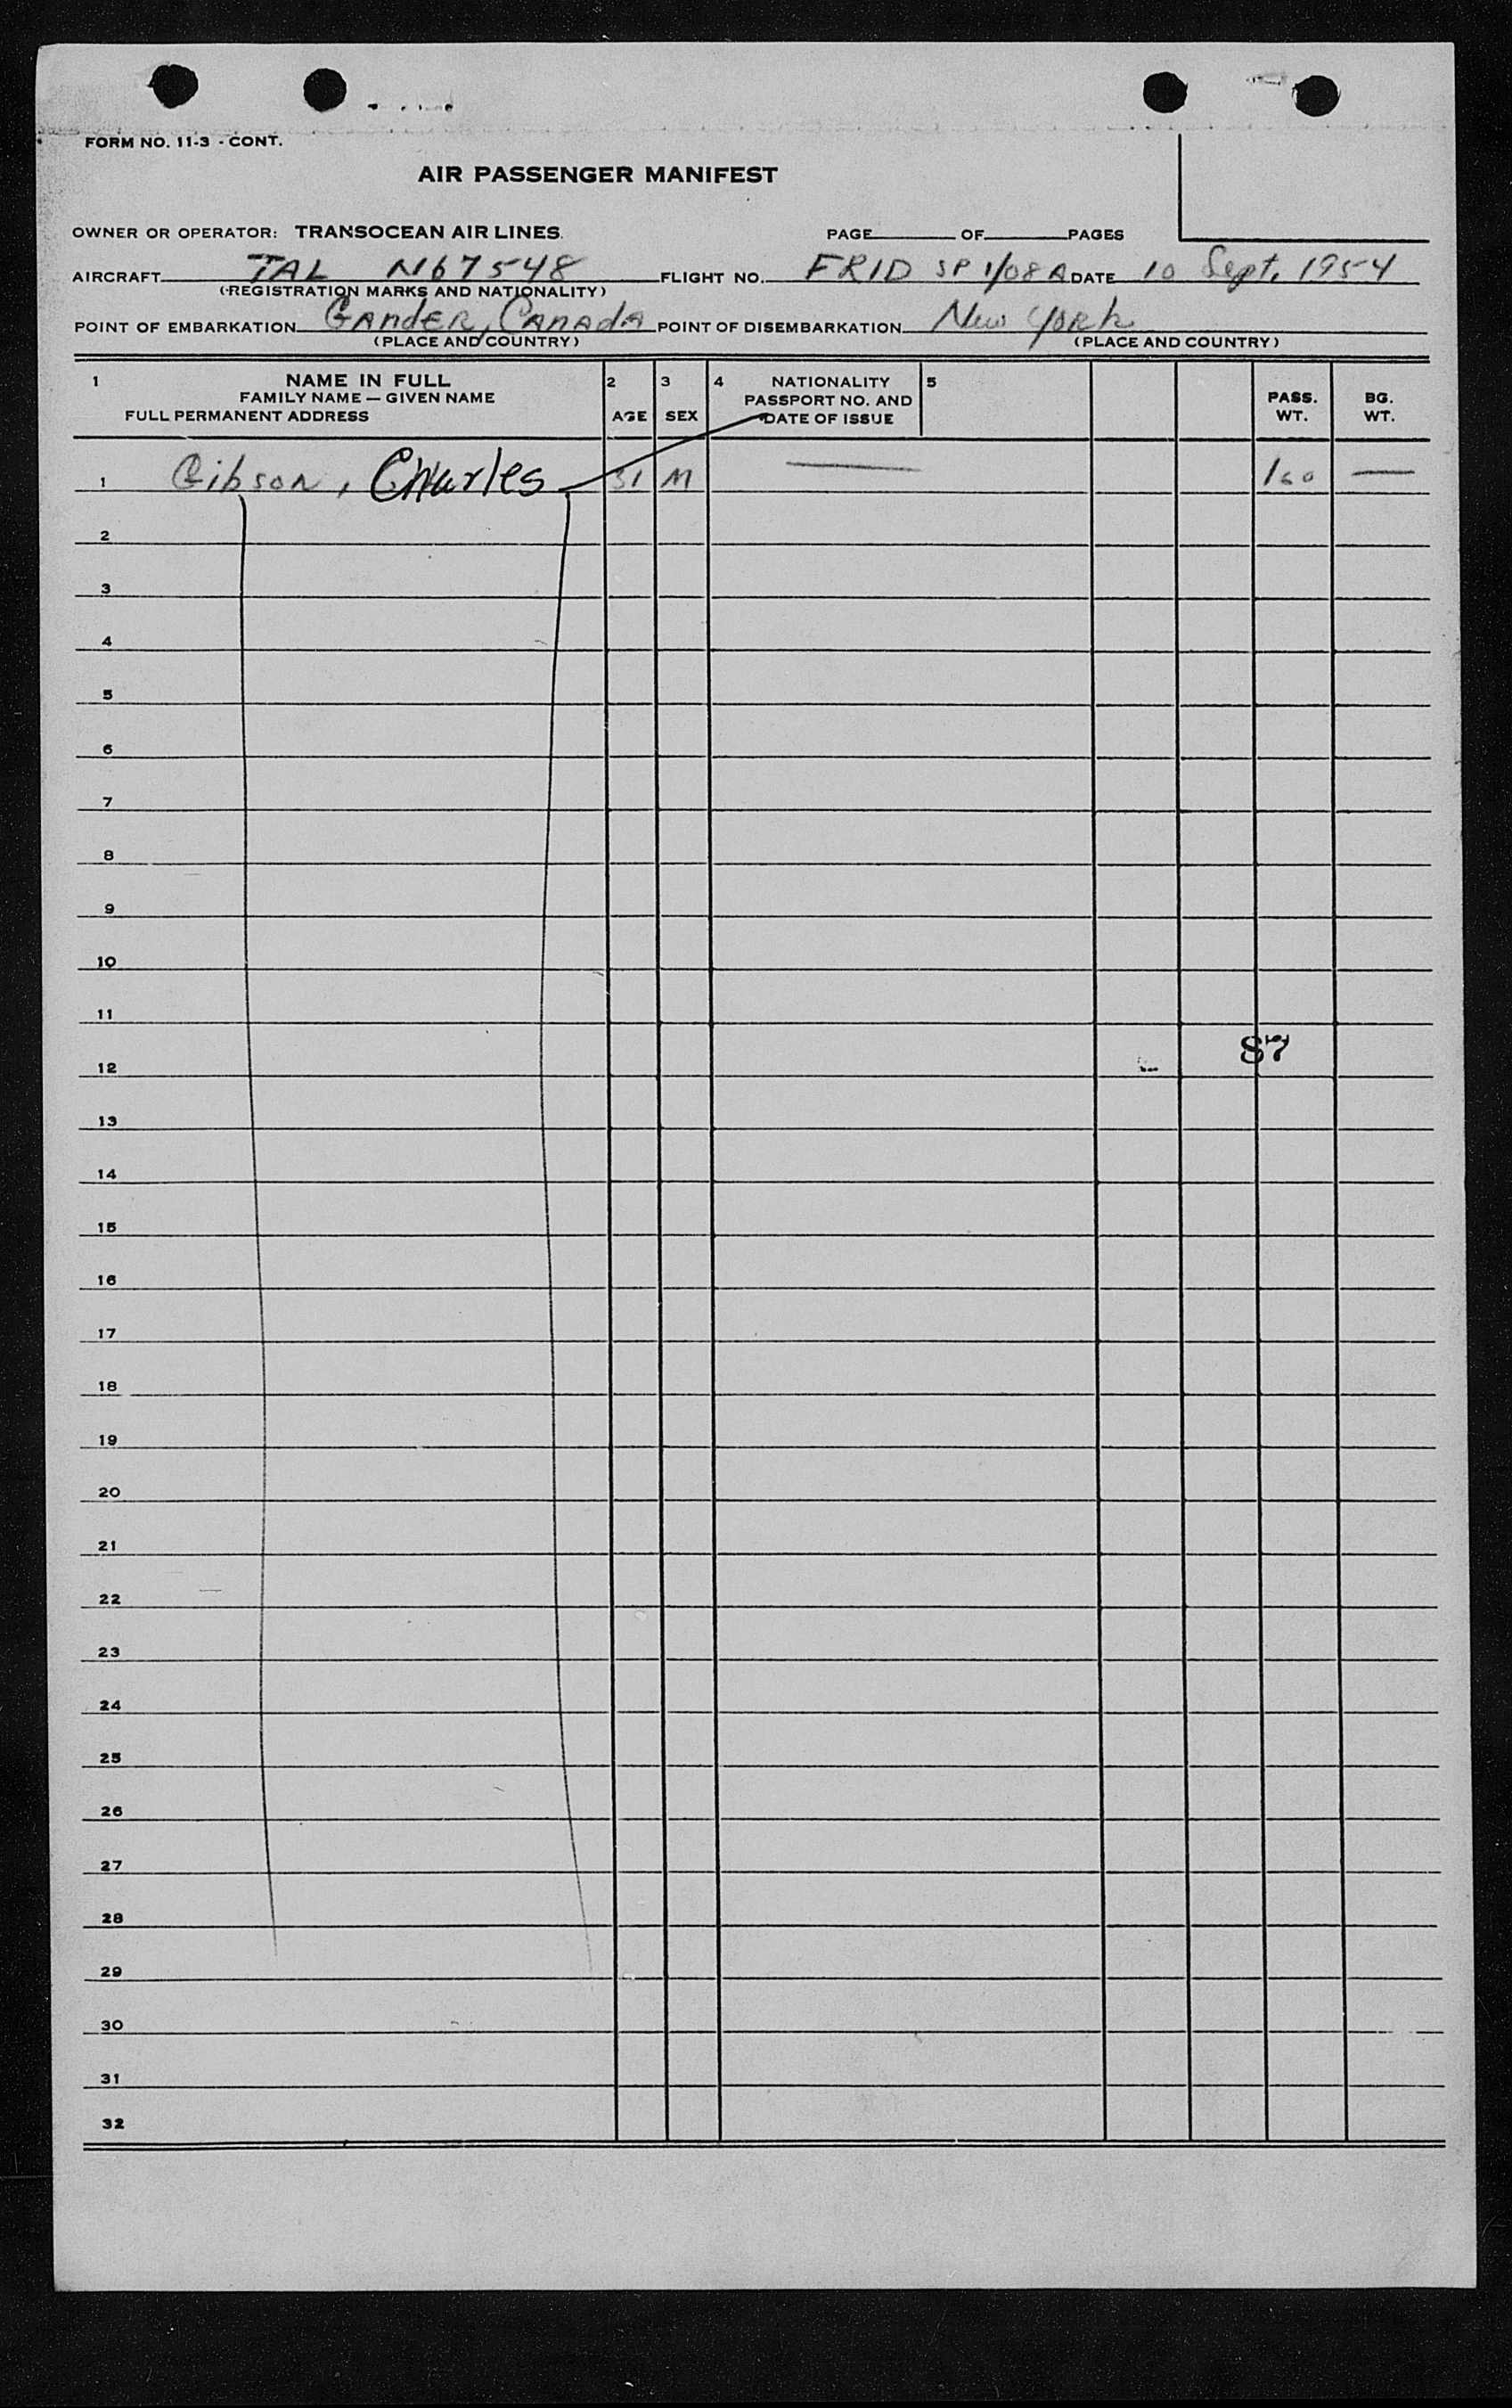 FORM NO. 11-3 - CONT.
AIR PASSENGER MANIFEST
OWNER OR OPERATOR: TRANSOCEAN AIR LINES. PAGE OF PAGES
AIRCRAFT TAL N67548 FLIGHT NO. FRID SP 1/08 A DATE 10 Sept. 1954
(REGISTRATION MARKS AND NATIONALITY)
POINT OF EMBARKATION Gander, Canada POINT OF DISEMBARKATION New York
(PLACE AND COUNTRY) (PLACE AND COUNTRY)
1 NAME IN FULL 2 3 4 NATIONALITY 5
FAMILY NAME — GIVEN NAME PASSPORT NO. AND PASS. BG.
FULL PERMANENT ADDRESS AGE SEX DATE OF ISSUE WT. WT.
1 Gibson, Charles 31 M — 160 —
2
3
4
5
6
7
8
9
10
11
12 87
13
14
15
16
17
18
19
20
21
22
23
24
25
26
27
28
29
30
31
32